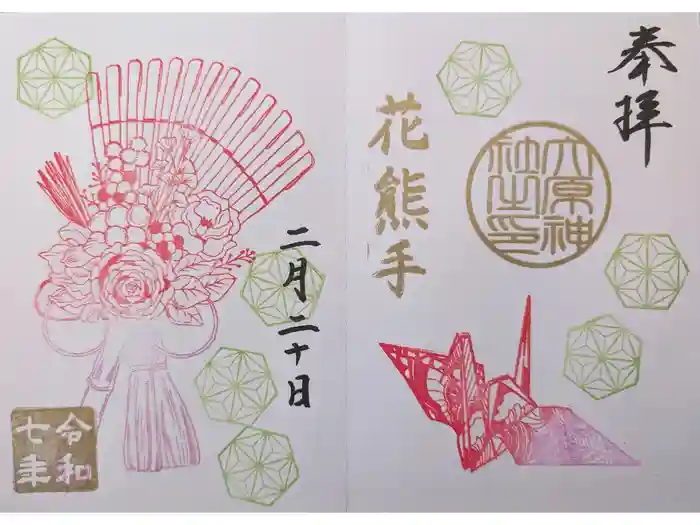 奉拝
大原神
社之印
花熊手
二月二十日
令和
七年